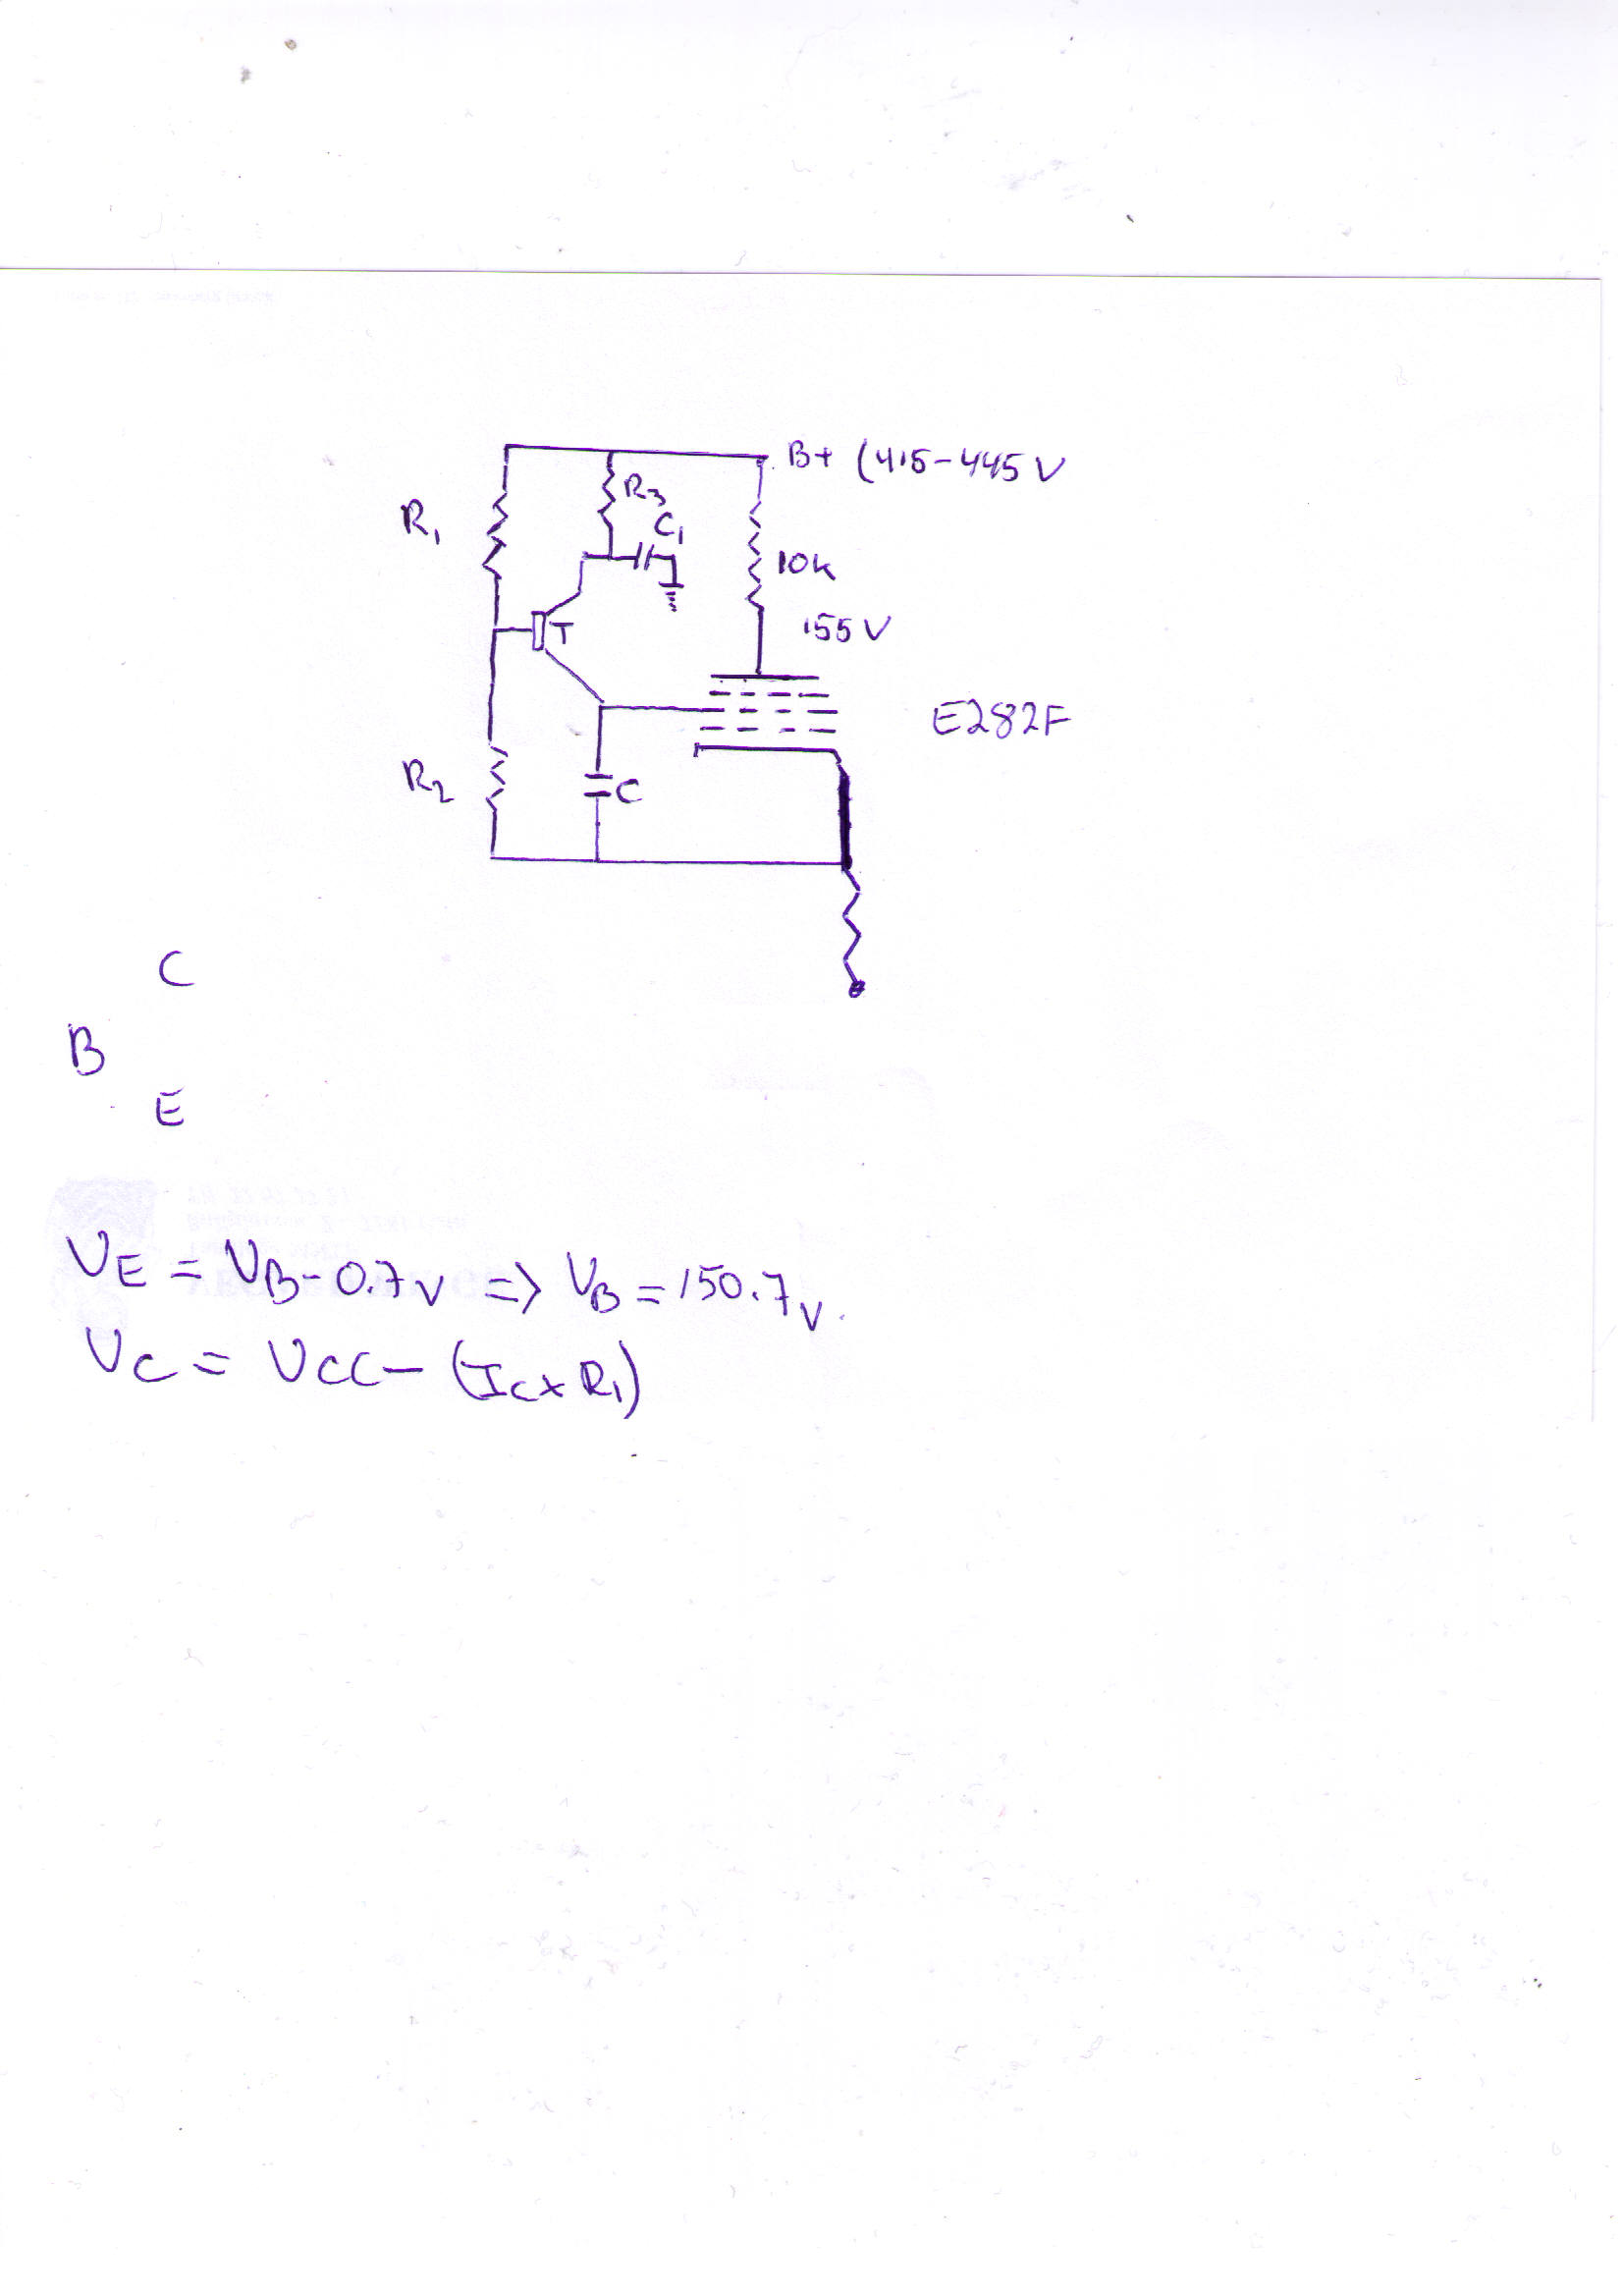 B+ (415-445 V
R3
R1
C1
10k
155V
T
E282F
R2
C
C
B
E
VE = VB-0.7V => VB = 150.7V.
VC = VCC- (Ic x R1)